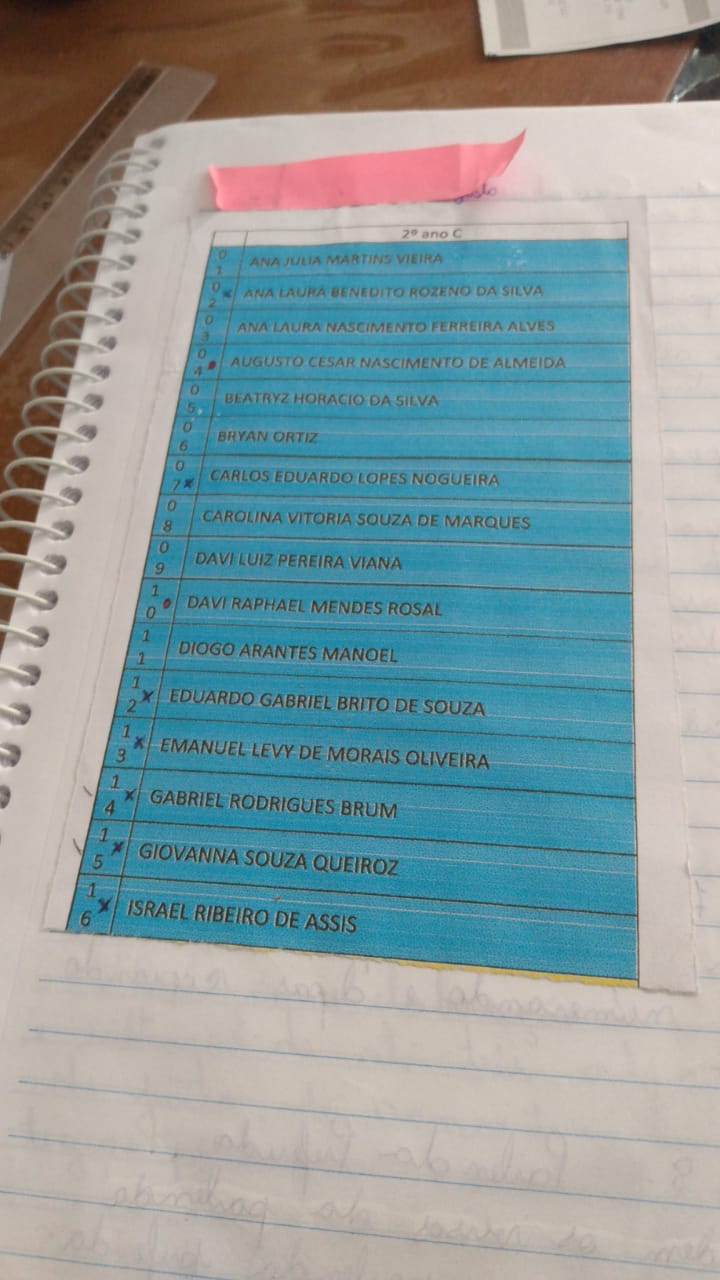 2º ano C
01 ANA JULIA MARTINS VIEIRA
02 x ANA LAURA BENEDITO ROZENO DA SILVA
03 ANA LAURA NASCIMENTO FERREIRA ALVES
04 AUGUSTO CESAR NASCIMENTO DE ALMEIDA
05 BEATRYZ HORACIO DA SILVA
06 BRYAN ORTIZ
07 x CARLOS EDUARDO LOPES NOGUEIRA
08 CAROLINA VITORIA SOUZA DE MARQUES
09 DAVI LUIZ PEREIRA VIANA
10 DAVI RAPHAEL MENDES ROSAL
11 DIOGO ARANTES MANOEL
12 x EDUARDO GABRIEL BRITO DE SOUZA
13 x EMANUEL LEVY DE MORAIS OLIVEIRA
14 x GABRIEL RODRIGUES BRUM
15 x GIOVANNA SOUZA QUEIROZ
16 x ISRAEL RIBEIRO DE ASSIS